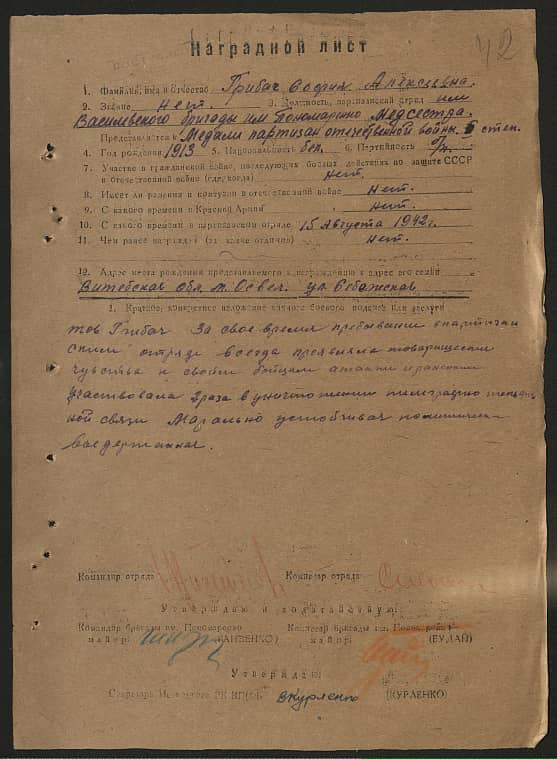 42
Наградной лист
1. Фамилия, имя и отчество Грибач София Алексеевна.
2. Звание нет. 3. Должность, партизанский отряд им
Васильевского бригады им Пономаренко Медсестра.
Представляется к Медали партизан отечественной войны II степ.
4. Год рождения 1913 5. Национальность бел. 6. Партийность б/п.
7. Участие в гражданской войне, последующих боевых действиях по защите СССР
и отечественной войне (где, когда) нет.
8. Имеет ли ранения и контузии в отечественной войне Нет.
9. С какого времени в Красной Армии нет.
10. С какого времени в партизанском отряде 15 Августа 1942 г.
11. Чем ранее награжден (за какие отличия) нет.
12. Адрес места рождения представляемого к награждению и адрес его семьи
Витебская обл. м. Освея. ул. Себежская
1. Краткое, конкретное изложение личного боевого подвига или заслуги
тов Грибач За свое время пребывания в партизан
ском отряде всегда проявляла товарищеские
чувства к своим бойцам
участвовала 2 раза в уничтожении телеграфно
ной связи Марально устойчивая политически
выдержанная.
Командир отряда Комиссар отряда
Утверждаю и ходатайствую:
Командир бригады им. Пономаренко Комиссар бригады им. Пономаренко
майор майор (БУДАЙ)
Утверждаю
Секретарь РК КП(б)Б ВКурленко (КУРЛЕНКО)